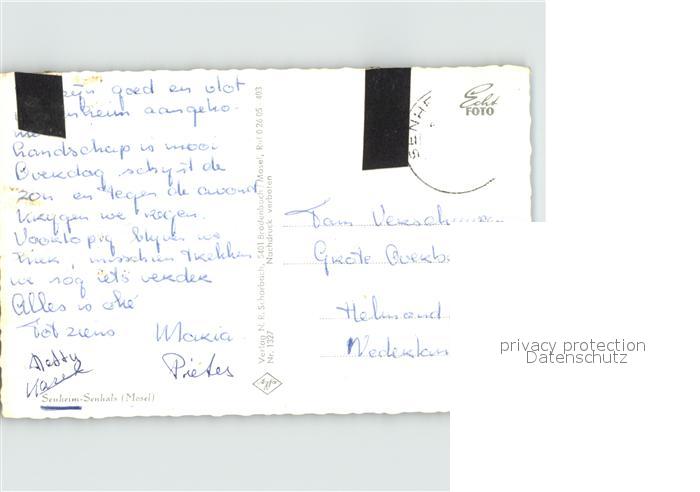 zijn goed en vlot
aangeko-
landschap is mooi
Overdag schijnt de
zon en tegen de avond
krygen we regen.
Voorlopig blyven we
hier, misschien trekken
we nog iets verder
Alles is oké
Tot ziens Maria
Pieter
Senheim-Senhals (Mosel)
Verlag N. R. Scharbach, 5401 Brodenbach/Mosel, Ruf 0 26 05 / 403
Nachdruck verboten
Nr. 1327
Agfa
Echt
FOTO
SENHE
Fam Verschuuren
Grote Overb
Helmond
Nederlan
privacy protection
Datenschutz